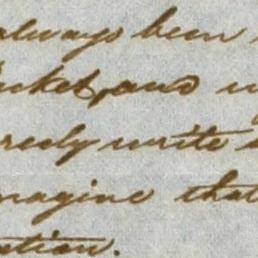 always been
cket, and
rcely write
magine that
tion.